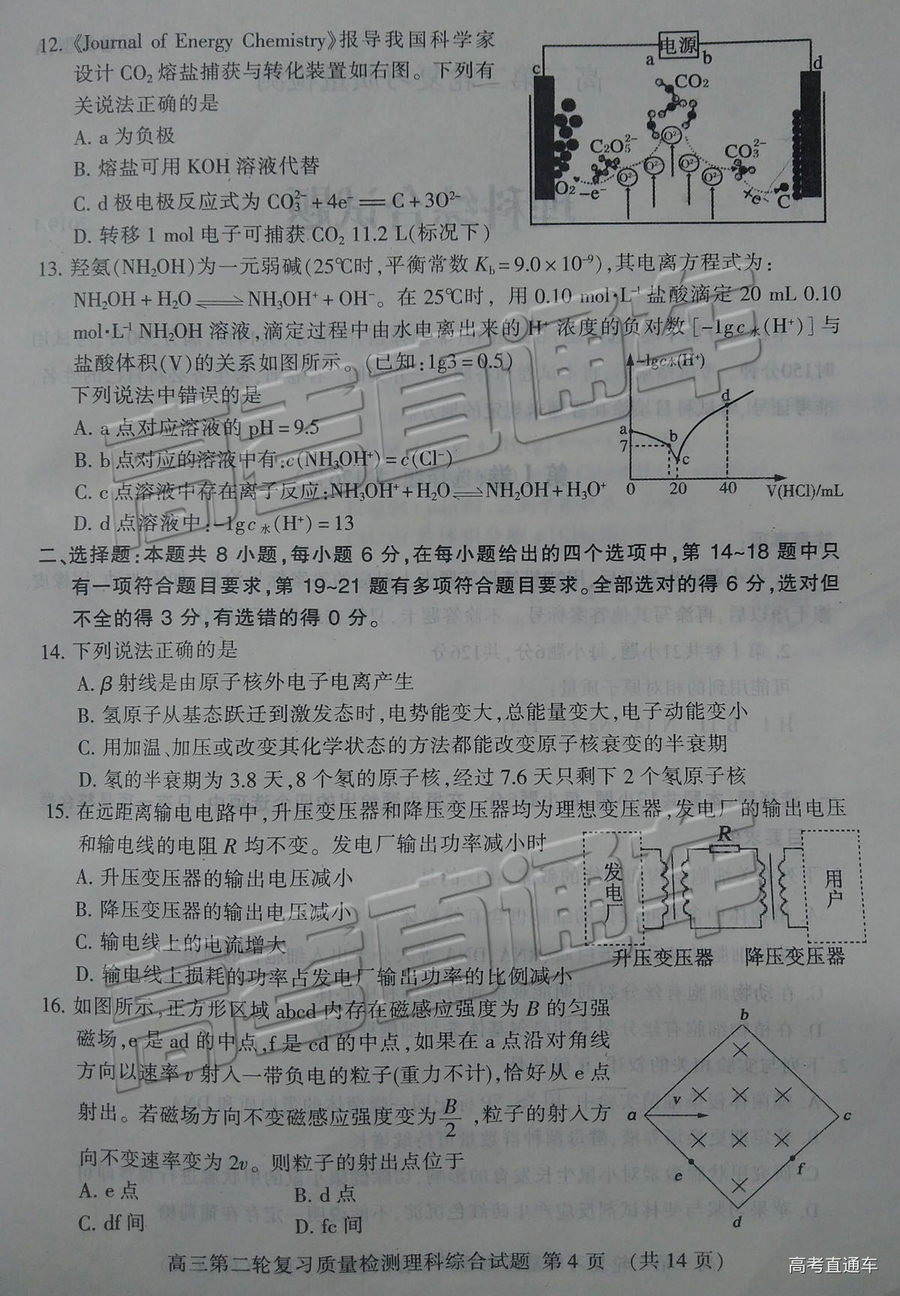 12.《Journal of Energy Chemistry》报导我国科学家
设计 CO₂ 熔盐捕获与转化装置如右图。下列有
关说法正确的是
A. a 为负极
B. 熔盐可用 KOH 溶液代替
C. d 极电极反应式为 CO₃²⁻+4e⁻══C+3O²⁻
D. 转移 1 mol 电子可捕获 CO₂ 11.2 L(标况下)
电源
a b
c d
CO₂
C₂O₅²⁻ CO₃²⁻
O²⁻ O²⁻ O²⁻ O²⁻ O²⁻
O₂ -e⁻ +e⁻ C
13. 羟氨(NH₂OH)为一元弱碱(25℃时,平衡常数 K_b=9.0×10⁻⁹),其电离方程式为:
NH₂OH+H₂O⇌NH₃OH⁺+OH⁻。在 25℃时, 用 0.10 mol·L⁻¹ 盐酸滴定 20 mL 0.10
mol·L⁻¹ NH₂OH 溶液,滴定过程中由水电离出来的 H⁺ 浓度的负对数[-lgc水(H⁺)]与
盐酸体积(V)的关系如图所示。(已知:lg3=0.5)
下列说法中错误的是
A. a 点对应溶液的 pH=9.5
B. b 点对应的溶液中有:c(NH₃OH⁺)=c(Cl⁻)
C. c 点溶液中存在离子反应:NH₃OH⁺+H₂O⇌NH₂OH+H₃O⁺
D. d 点溶液中:-lgc水(H⁺)=13
-lgc水(H⁺)
a
7 b
c
d
0 20 40 V(HCl)/mL
二、选择题:本题共 8 小题,每小题 6 分,在每小题给出的四个选项中,第 14~18 题中只
有一项符合题目要求,第 19~21 题有多项符合题目要求。全部选对的得 6 分,选对但
不全的得 3 分,有选错的得 0 分。
14. 下列说法正确的是
A. β 射线是由原子核外电子电离产生
B. 氢原子从基态跃迁到激发态时,电势能变大,总能量变大,电子动能变小
C. 用加温、加压或改变其化学状态的方法都能改变原子核衰变的半衰期
D. 氡的半衰期为 3.8 天,8 个氡的原子核,经过 7.6 天只剩下 2 个氡原子核
15. 在远距离输电电路中,升压变压器和降压变压器均为理想变压器,发电厂的输出电压
和输电线的电阻 R 均不变。发电厂输出功率减小时
A. 升压变压器的输出电压减小
B. 降压变压器的输出电压减小
C. 输电线上的电流增大
D. 输电线上损耗的功率占发电厂输出功率的比例减小
R
发电厂
用户
升压变压器 降压变压器
16. 如图所示,正方形区域 abcd 内存在磁感应强度为 B 的匀强
磁场,e 是 ad 的中点,f 是 cd 的中点,如果在 a 点沿对角线
方向以速率 v 射入一带负电的粒子(重力不计),恰好从 e 点
射出。若磁场方向不变磁感应强度变为 B/2 ,粒子的射入方
向不变速率变为 2v。则粒子的射出点位于
A. e 点 B. d 点
C. df 间 D. fc 间
b
a v c
e f
d
高三第二轮复习质量检测理科综合试题 第 4 页 (共 14 页)
高考直通车
高考直通车
高考直通车